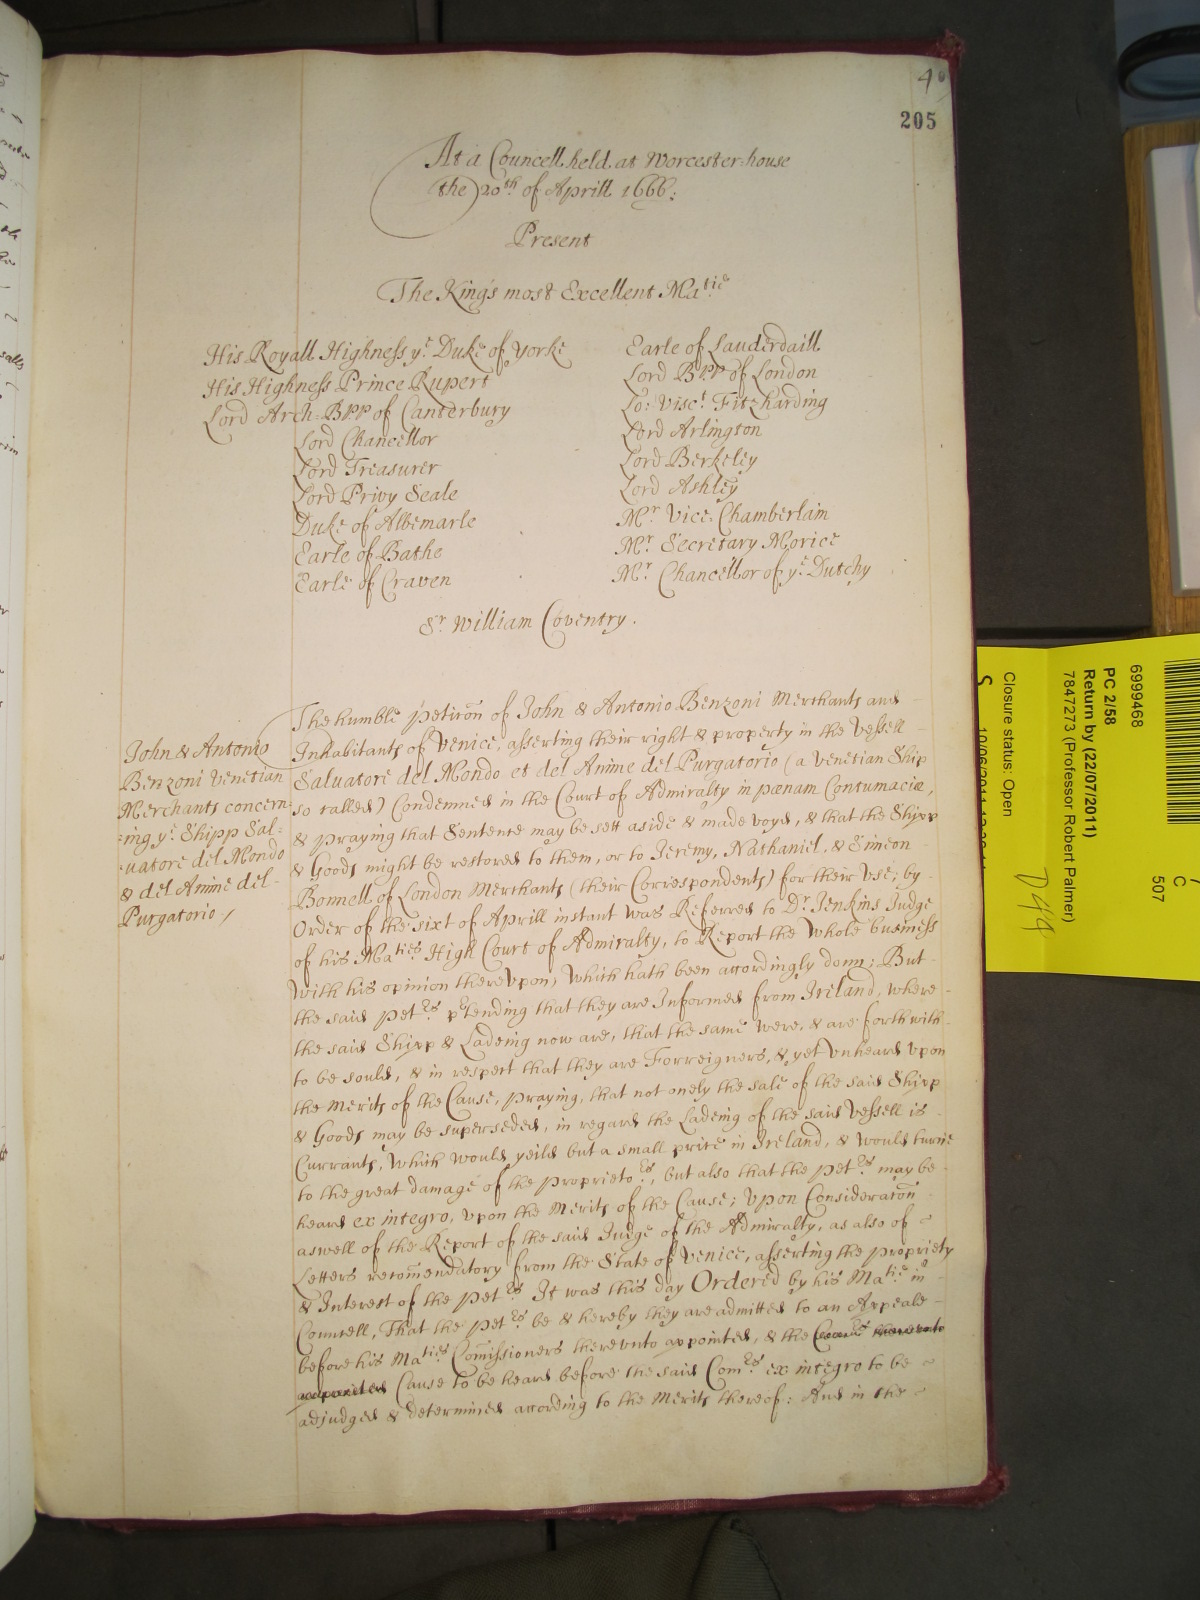 40
205
At a Councell held at Worcester-house
the 20th of Aprill 1666:
Present
The King's most Excellent Ma.tie
His Royall Highness ye Duke of Yorke
His Highness Prince Rupert
Lord Arch-BPP of Canterbury
Lord Chancellor
Lord Treasurer
Lord Privy Seale
Duke of Albemarle
Earle of Bathe
Earle of Craven
Earle of Lauderdaill
Lord BPP of London
Lo: Visct Fitzharding
Lord Arlington
Lord Berkeley
Lord Ashley
Mr. Vice-Chamberlain
Mr. Secretary Morice
Mr. Chancellor of ye Dutchy
Sr. William Coventry.
John & Antonio
Benzoni Venetian
Merchants concern-
-ing ye Shipp Sal-
-uatore del Mondo
& del Anime del-
Purgatorio /
The humble peticõn of John & Antonio Benzoni Merchants and
Inhabitants of Venice, asserting their right & property in the Vessell
Saluatore del Mondo et del Anime del Purgatorio (a Venetian Ship
so called) Condemned in the Court of Admiralty in pœnam Contumaciæ,
& praying that Sentence may be sett aside & made voyd, & that the Shipp
& Goods might be restored to them, or to Jeremy, Nathaniel, & Simeon
Bonnell of London Merchants (their Correspondents) for their vse; by
Order of the sixt of Aprill instant was Referred to Dr. Jenkins Judge
of his Ma.ties High Court of Admiralty, to Report the Whole business
with his opinion therevpon, Which hath been accordingly donn; But
the said Petrs. prtending that they are Informed from Ireland, where
the said Shipp & Ladeing now are, that the same were, & are forthwith
to be sould, & in respect that they are Forreigners, & yet vnheard vpon
the Merits of the Cause, praying, that not onely the sale of the said Shipp
& Goods may be superseded, in regard the Ladeing of the said Vessell is
Currants, Which would yeild but a small price in Ireland, & would turne
to the great damage of the Proprietors, but also that the Petrs. may be
heard ex integro, vpon the Merits of the Cause; Vpon Consideratõn
aswell of the Report of the said Judge of the Admiralty, as also of
Letters recom̃endatory from the State of Venice, asserting the propriety
& Interest of the Petrs. It was this day Ordered by his Ma.tie in
Councell, That the Petrs. be & hereby they are admitted to an Appeale
before his Ma.ties Com̃issioners therevnto appointed, & the
Cause to be heard before the said Comrs. ex integro to be
adjudged & determined according to the Merits thereof: And in the
6999468
PC 2/58
Return by (22/07/2011)
7847273 (Professor Robert Palmer)
Closure status: Open
C
507